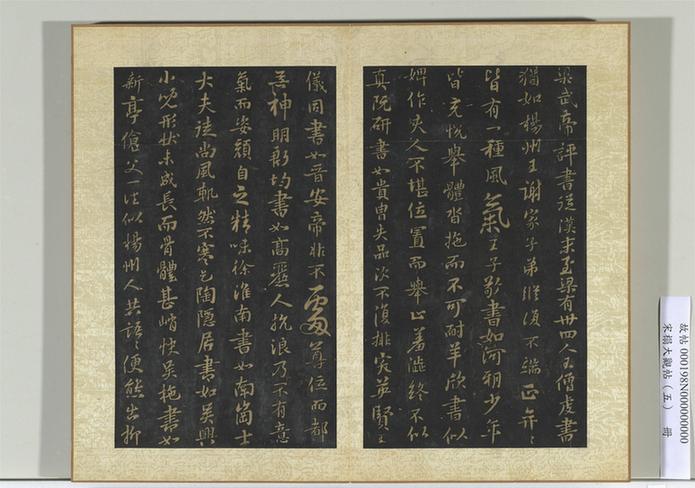 梁武帝評書從漢末至梁有卅四人王僧虔書
猶如楊州王謝家子弟縱復不端正奕〻
皆有一種風氣王子敬書如河朔少年
皆充悅舉體沓拖而不可耐羊欣書似
婢作夫人不堪位置而舉止羞澀終不似
真阮研書如貴胄失品次不復排突英賢王
儀同書如晉安帝非不處尊位而都
無神明殷均書如高麗人抗浪乃不有意
氣而姿顏自乏精味徐淮南書如南岡士
大夫徒尚風軌然不寒乞陶隱居書如吳興
小兒形狀未成長而骨體甚峭快吳施書如
新亭傖父一往似楊州人共語〻便態出柳
故帖000198N000000000
宋榻大觀帖(五) 冊